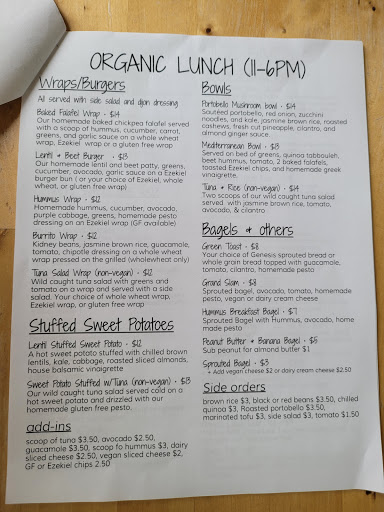 ORGANIC LUNCH (11-6PM)
Wraps/Burgers
All served with side salad and dijon dressing
Baked Falafel Wrap - $14
Our homemade baked chickpea falafel served
with a scoop of hummus, cucumber, carrot,
greens, and garlic sauce on a whole wheat
wrap, Ezekiel wrap or a gluten free wrap
Lentil & Beet Burger - $13
Our homemade lentil and beet patty, greens,
cucumber, avocado, garlic sauce on a Ezekiel
burger bun ( or your choice of Ezekiel, whole
wheat, or gluten free wrap)
Hummus Wrap - $12
Homemade hummus, cucumber, avocado,
purple cabbage, greens, homemade pesto
dressing on an Ezekiel wrap (GF available)
Burrito Wrap - $12
Kidney beans, jasmine brown rice, guacamole,
tomato, chipotle dressing on a whole wheat
wrap pressed on the grilled (wholewheat only)
Tuna Salad Wrap (non-vegan) - $12
Wild caught tuna salad with greens and
tomato on a wrap and served with a side
salad. Your choice of whole wheat wrap,
Ezekiel wrap, or gluten free wrap
Stuffed Sweet Potatoes
Lentil Stuffed Sweet Potato - $12
A hot sweet potato stuffed with chilled brown
lentils, kale, cabbage, roasted sliced almonds,
house balsamic vinaigrette
Sweet Potato Stuffed w/Tuna (non-vegan) - $13
Our wild caught tuna salad served cold on a
hot sweet potato and drizzled with our
homemade gluten free pesto.
add-ins
scoop of tuna $3.50, avocado $2.50,
guacamole $3.50, scoop fo hummus $3, dairy
sliced cheese $2.50, vegan sliced cheese $2,
GF or Ezekiel chips 2.50
Bowls
Portobello Mushroom bowl - $14
Sautéed portobello, red onion, zucchini
noodles, and kale, jasmine brown rice, roasted
cashews, fresh cut pineapple, cilantro, and
almond ginger sauce.
Mediterranean Bowl - $13
Served on bed of greens, quinoa tabbouleh,
beet hummus, tomato, 2 baked falafels,
toasted Ezekiel chips, and homemade greek
vinaigrette.
Tuna & Rice (non-vegan) - $14
Two scoops of our wild caught tuna salad
served with jasmine brown rice, tomato,
avocado, & cilantro
Bagels & others
Green Toast - $8
Your choice of Genesis sprouted bread or
whole grain bread topped with guacamole,
tomato, cilantro, homemade pesto
Grand Slam - $8
Sprouted bagel, avocado, tomato, homemade
pesto, vegan or dairy cream cheese
Hummus Breakfast Bagel - $7
Sprouted Bagel with Hummus, avocado, home
made pesto
Peanut Butter & Banana Bagel - $5
Sub peanut for almond butter $1
Sprouted Bagel - $3
+ Add vegan cheese $2 or dairy cream cheese $2.50
Side orders
brown rice $3, black or red beans $3.50, chilled
quinoa $3, Roasted portobello $3.50,
marinated tofu $3, side salad $3, tomato $1.50